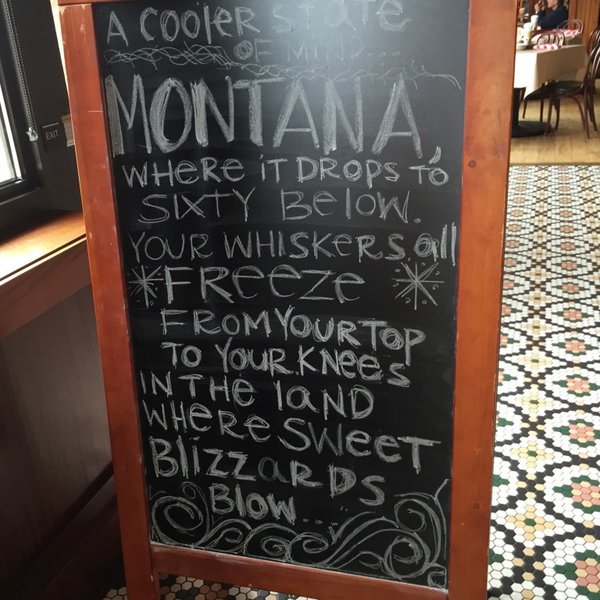 A COOLER STATE
OF MIND...
MONTANA,
WHERE IT DROPS TO
SIXTY BELOW.
YOUR WHISKERS all
FREEZE
FROM YOUR TOP
TO YOUR KNEES
IN THE lAND
WHERE SWEET
BlizzARDS
Blow...
EXIT